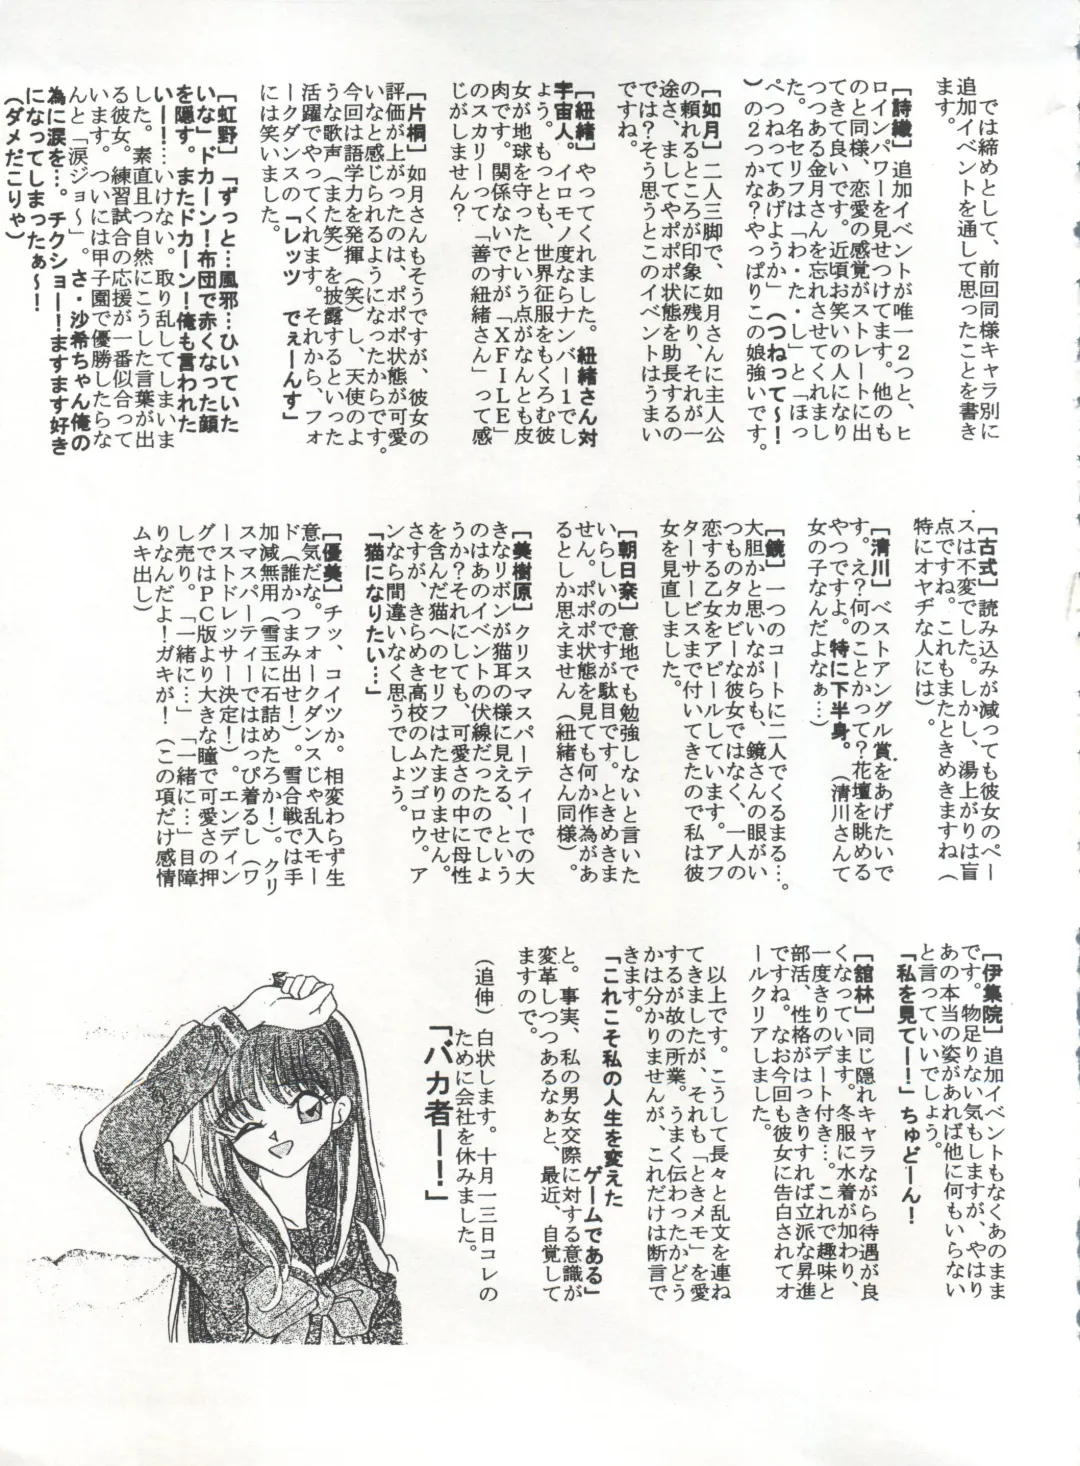 では締めとして、前回同様キャラ別に
追加イベントを通して思ったことを書き
ます。
[詩織] 追加イベントが唯一2つと、ヒ
ロインパワーを見せつけてます。他のも
のと同様、恋愛の感覚がストレートに出
てきて良いです。近頃お笑いの人になり
つつある金月さんを忘れさせてくれまし
た。名セリフは「わ・た・し」と「ほっ
ぺつねってあげようか」(つねって〜!
)の2つかな?やっぱりこの娘強いです。
[如月] 二人三脚で、如月さんに主人公
の頼れるところが印象に残り、それが一
途さ、ましてやポポポ状態を助長するの
では?そう思うとこのイベントはうまい
ですね。
[紐緒] やってくれました。紐緒さん対
宇宙人。イロモノ度ならナンバー1でし
ょう。もっとも、世界征服をもくろむ彼
女が地球を守ったという点がなんとも皮
肉です。関係ないですが「XFILE」
のスカリーって「善の紐緒さん」って感
じがしません?
[片桐] 如月さんもそうですが、彼女の
評価が上がったのは、ポポポ状態が可愛
いなと感じられるようになったからです。
今回は語学力を発揮(笑)し、天使のよ
うな歌声(また笑)を披露するといった
活躍でやってくれます。それから、フォ
ークダンスの「レッツ でぇーんす」
には笑いました。
[虹野] 「ずっと…風邪…ひいていた
いな」ドカーン!布団で赤くなった顔
を隠す。またドカーン!俺も言われた
いー!……いけない。取り乱してしまいま
した。素直且つ自然にこうした言葉が出
る彼女。練習試合の応援が一番似合って
います。ついには甲子園で優勝したらな
んと「涙ジョ〜」。さ・沙希ちゃん俺の
為に涙を…。チクショー!ますます好き
になってしまったぁ〜!
(ダメだこりゃ)
[古式] 読み込みが減っても彼女のペー
スは不変でした。しかし、湯上がりは盲
点ですね。これもまたときめきますね(
特にオヤヂな人には)。
[清川] ベストアングル賞をあげたいで
す。え?何のことかって?花壇を眺める
やつですよ。特に下半身。(清川さんて
女の子なんだよなぁ…)
[鏡] 一つのコートに二人でくるまる…。
大胆かと思いながらも、鏡さんの眼がい
つものタカビーな彼女ではなく、一人の
恋する乙女をアピールしています。アフ
ターサービスまで付いてきたので私は彼
女を見直しました。
[朝日奈] 意地でも勉強しないと言いた
いらしいのですが駄目です。ときめきま
せん。ポポポ状態を見ても何か作為があ
るとしか思えません(紐緒さん同様)。
[美樹原] クリスマスパーティーでの大
きなリボンが猫耳の様に見える、という
のはあのイベントの伏線だったのでしょ
うか?それにしても、可愛さの中に母性
を含んだ猫へのセリフはたまりません。
さすが、きらめき高校のムツゴロウ。ア
ンなら間違いなく思うでしょう。
「猫になりたい…」
[優美] チッ、コイツか。相変わらず生
意気だな。フォークダンスじゃ乱入モー
ド(誰かつまみ出せ!)。雪合戦では手
加減無用(雪玉に石詰めたろか!)。クリ
スマスパーティーでははっぴ着るし(ワ
ーストドレッサー決定!)。エンディン
グではPC版より大きな瞳で可愛さの押
し売り。「一緒に…」「一緒に…」目障
りなんだよ!ガキが!(この項だけ感情
ムキ出し)
[伊集院] 追加イベントもなくあのまま
です。物足りない気もしますが、やはり
あの本当の姿があれば他に何もいらない
と言っていいでしょう。
「私を見てー!」ちゅどーん!
[舘林] 同じ隠れキャラながら待遇が良
くなっています。冬服に水着が加わり、
一度きりのデート付き…。これで趣味と
部活、性格がはっきりすれば立派な昇進
ですね。なお今回も彼女に告白されてオ
ールクリアしました。
以上です。こうして長々と乱文を連ね
てきましたが、それも「ときメモ」を愛
するが故の所業。うまく伝わったかどう
かは分かりませんが、これだけは断言で
きます。
「これこそ私の人生を変えた
ゲームである」
と。事実、私の男女交際に対する意識が
変革しつつあるなぁと、最近、自覚して
ますので。
(追伸) 白状します。十月一三日コレの
ために会社を休みました。
「バカ者ー!」